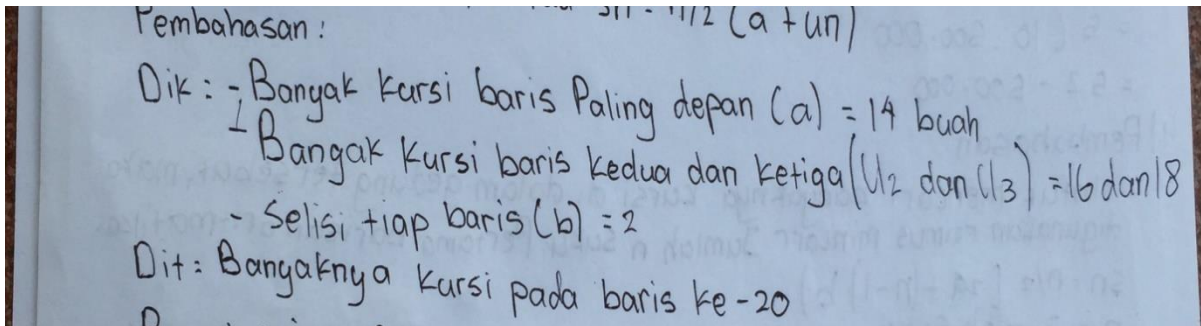 Sn = n/2 (a + un)
Pembahasan :
Dik : - Banyak kursi baris Paling depan (a) = 14 buah
- Bangak kursi baris kedua dan ketiga (U2 dan U3) = 16 dan 18
- Selisi tiap baris (b) = 2
Dit : Bangaknya kursi pada baris ke - 20